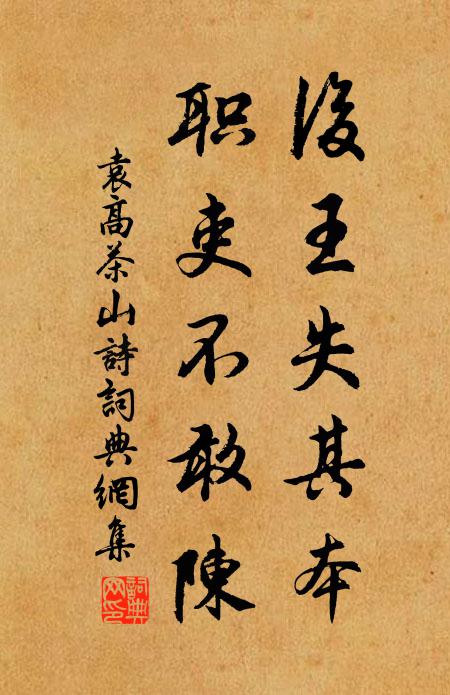 後王失其本
职吏不敢陳
袁高茶山詩詞典網集
詞典网印